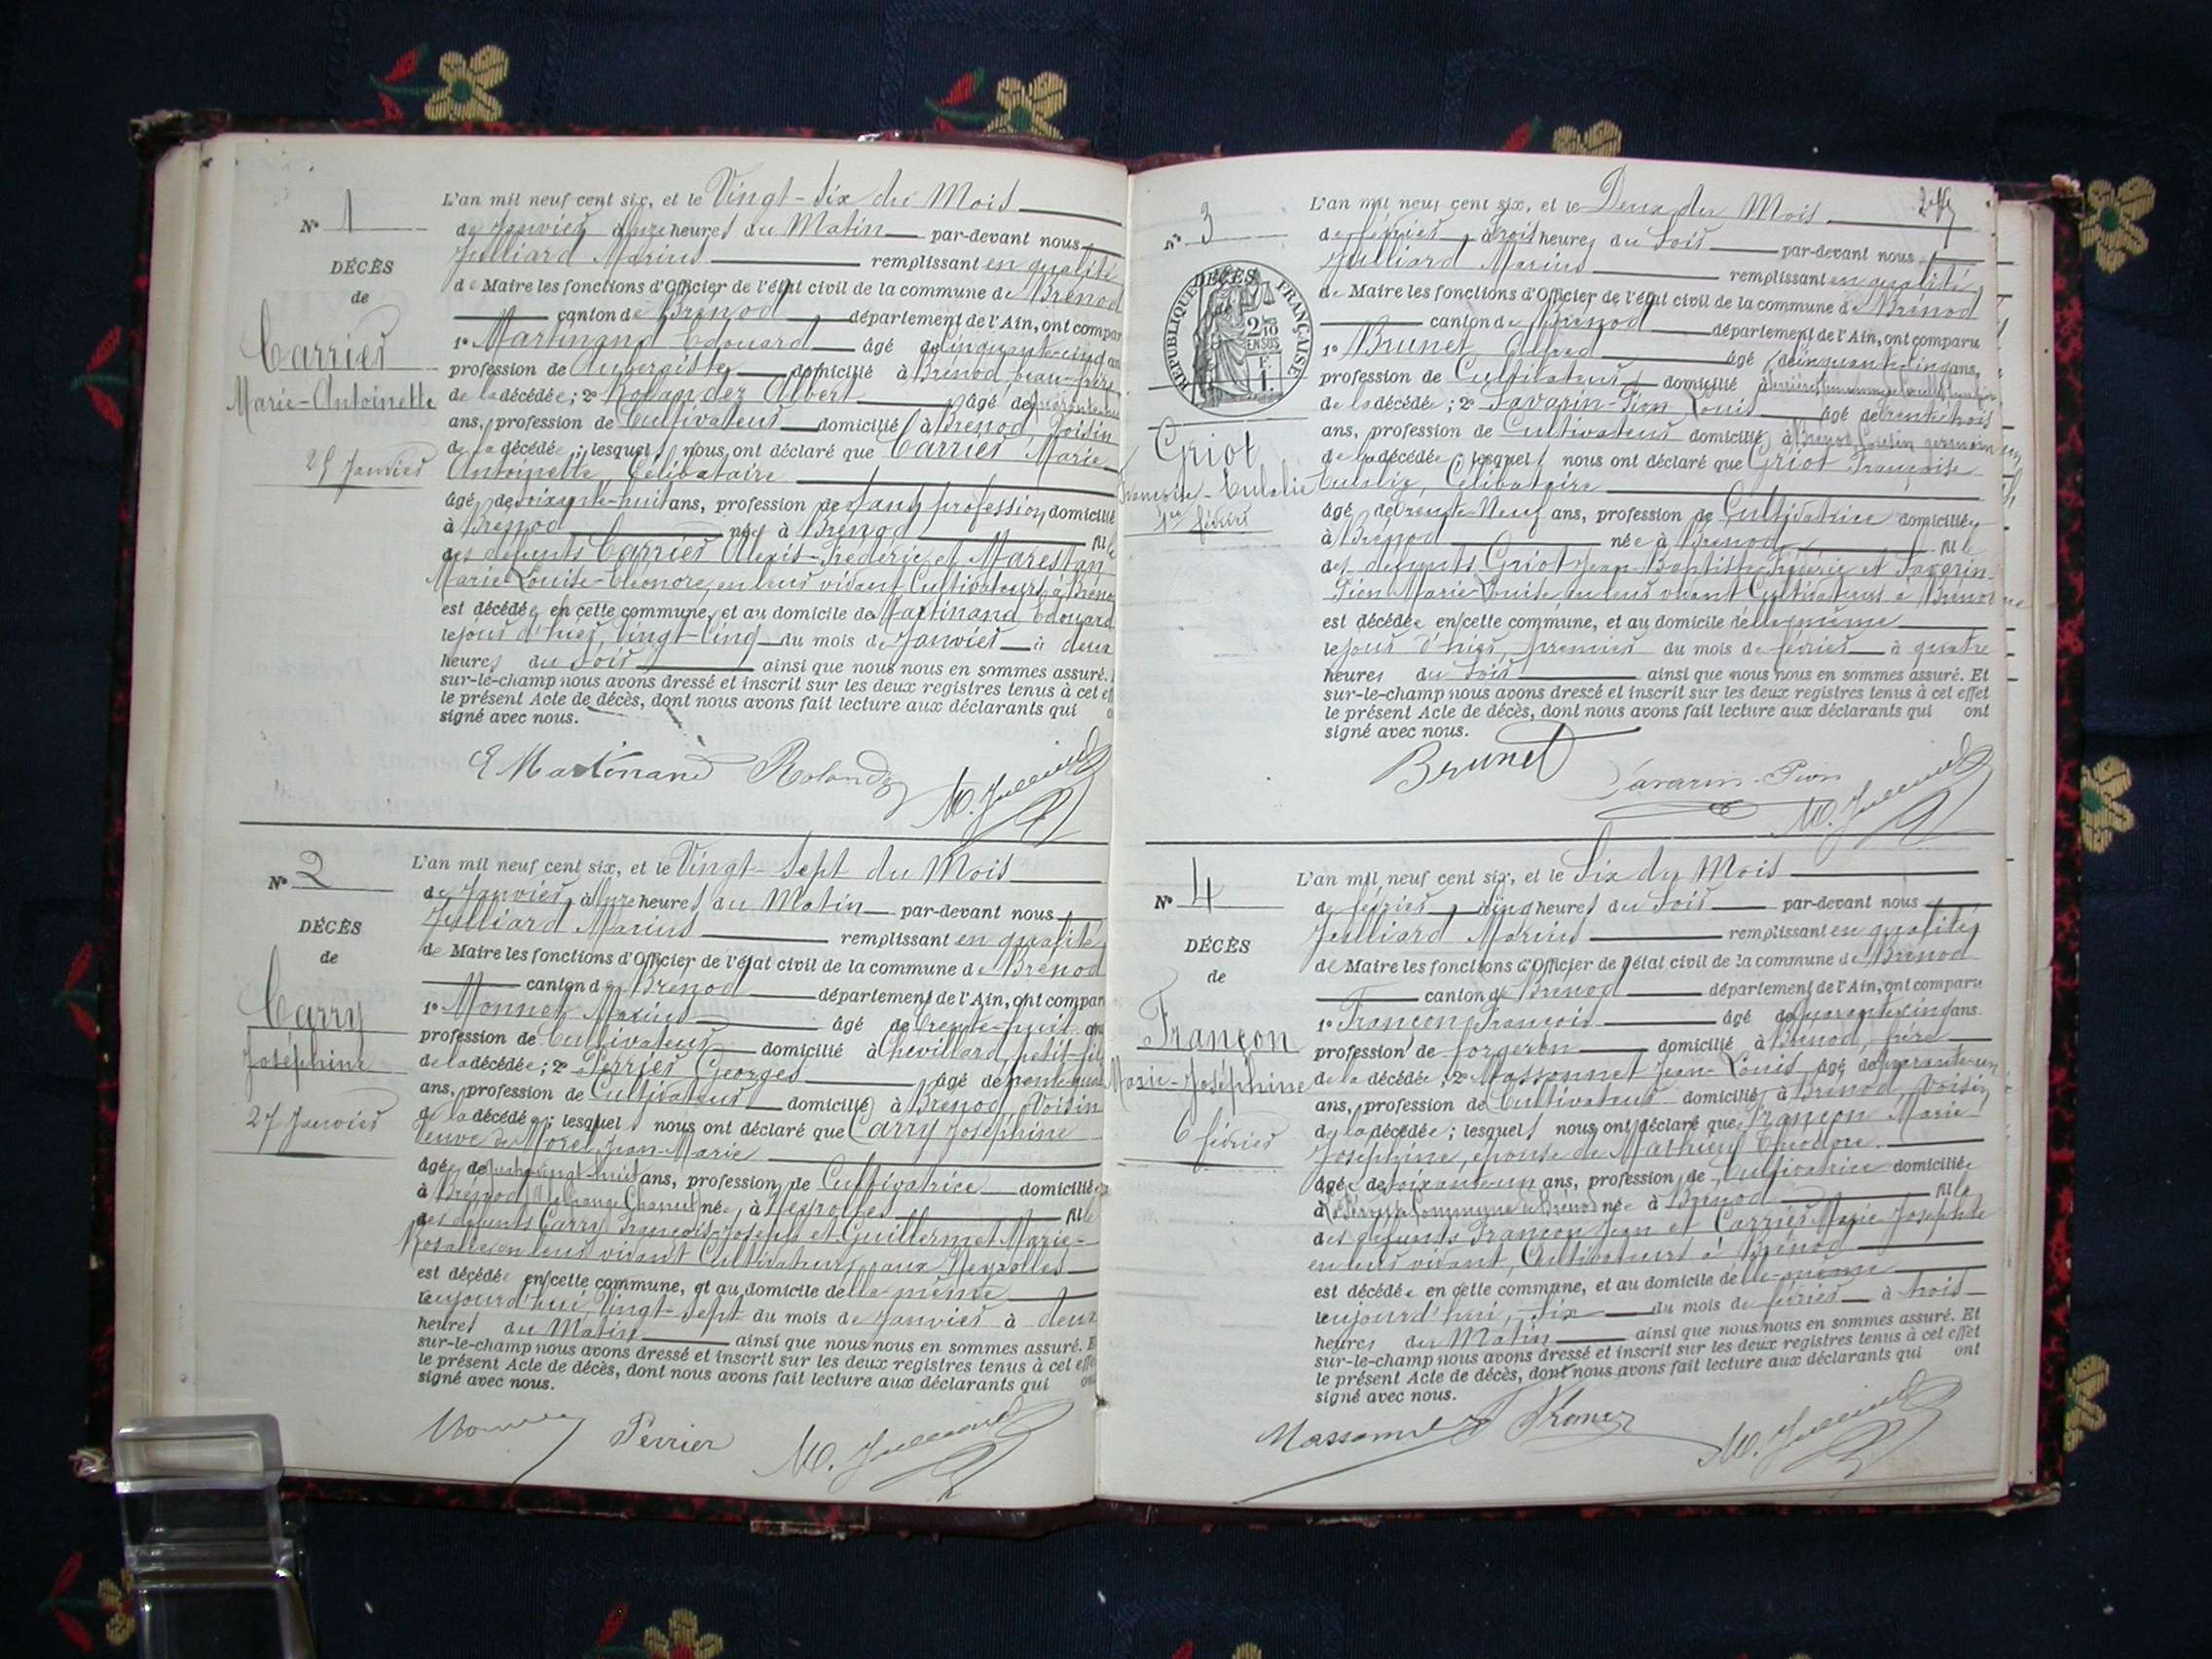 N° 1
DÉCÈS
de
Carrier
Marie-Antoinette
25 Janvier
L'an mil neuf cent six, et le Vingt-six du Mois
de Janvier à onze heures du Matin par-devant nous
Julliard Marius remplissant en qualité
de Maire les fonctions d'Officier de l'état civil de la commune de Brénod
canton de Brénod département de l'Ain, ont compar
1° Martinand Edouard âgé de cinquante-cinq an
profession de Aubergiste domicilié à Brénod, beau-frère
de la décédée; 2° Rolandez Albert âgé de
ans, profession de Cultivateur domicilié à Brénod Voisin
de la décédée; lesquels nous ont déclaré que Carrier Marie
Antoinette Célibataire
âgée de soixante-huit ans, profession de sans profession domicilié
à Brénod née à Brénod fille
des défunts Carrier Alexis-Frédéric et Marestan
Marie-Louise-Eléonore, en leur vivant Cultivateurs à Bréno
est décédée en cette commune, et au domicile de Martinand Edouard
le jour d'hier, Vingt-Cinq du mois de Janvier à deux
heures du Soir ainsi que nous nous en sommes assuré.
sur-le-champ nous avons dressé et inscrit sur les deux registres tenus à cet eff
le présent Acte de décès, dont nous avons fait lecture aux déclarants qui
signé avec nous.
E Martinand Rolandez M. Julliard
N° 2
DÉCÈS
de
Carry
Joséphine
27 Janvier
L'an mil neuf cent six, et le Vingt-Sept du Mois
de Janvier, à onze heures du Matin par-devant nous
Julliard Marius remplissant en qualité
de Maire les fonctions d'Officier de l'état civil de la commune de Brénod
canton de Brénod département de l'Ain, ont compar
1° Monnet Marius âgé de trente-huit an
profession de Cultivateur domicilié à Chevillard, petit-fil
de la décédée; 2° Perrier Georges âgé de
ans, profession de Cultivateur domicilié à Brénod, Voisin
de la décédée; lesquels nous ont déclaré que Carry Joséphine
Veuve de Morel Jean-Marie
âgée de quatre-vingt-huit ans, profession de Cultivatrice domiciliée
à Brénod née à Neyrolles fille
des défunts Carry François-Joseph et Guillermet Marie-
Rosalie en leur vivant Cultivateurs aux Neyrolles
est décédée en cette commune, et au domicile de elle-même
aujourd'hui, Vingt-Sept du mois de Janvier à deux
heures du Matin ainsi que nous nous en sommes assuré. E
sur-le-champ nous avons dressé et inscrit sur les deux registres tenus à cet effe
le présent Acte de décès, dont nous avons fait lecture aux déclarants qui on
signé avec nous.
Perrier M. Julliard
N° 3
DÉCÈS
de
RÉPUBLIQUE FRANÇAISE
2/10
EN SUS
1 F.
Griot
Françoise-Eulalie
1er février
L'an mil neuf cent six, et le Deux du Mois
de février, à trois heures du Soir par-devant nous
Julliard Marius remplissant en qualité
de Maire les fonctions d'Officier de l'état civil de la commune de Brénod
canton de Brénod département de l'Ain, ont comparu
1° Brunet Alfred âgé de cinquante-cinq ans,
profession de Cultivateur domicilié à
de la décédée; 2° Savarin-Pion Louis âgé de trente-trois
ans, profession de Cultivateur domicilié à Brénod Cousin germain
de la décédée lesquels nous ont déclaré que Griot Françoise
Eulalie, Célibataire
âgée de trente-Neuf ans, profession de Cultivatrice domiciliée
à Brénod née à Brénod fille
des défunts Griot Jean-Baptiste-Frédéric et Savarin-
Pion Marie-Louise en leur vivant Cultivateurs à Brénod
est décédée en cette commune, et au domicile de elle-même
le jour d'hier, premier du mois de février à quatre
heures du Soir ainsi que nous nous en sommes assuré. Et
sur-le-champ nous avons dressé et inscrit sur les deux registres tenus à cet effet
le présent Acte de décès, dont nous avons fait lecture aux déclarants qui ont
signé avec nous.
Brunet Savarin-Pion M. Julliard
N° 4
DÉCÈS
de
Françon
Marie-Joséphine
6 février
L'an mil neuf cent six, et le Six du Mois
de février, à cinq heures du Soir par-devant nous
Julliard Marius remplissant en qualité
de Maire les fonctions d'Officier de l'état civil de la commune de Brénod
canton de Brénod département de l'Ain, ont comparu
1° Françon François âgé de quarante-cinq ans
profession de forgeron domicilié à Brénod, frère
de la décédée; 2° Massonnet Jean-Louis âgé de quarante-un
ans, profession de Cultivateur domicilié à Brénod, Voisin
de la décédée; lesquels nous ont déclaré que Françon Marie-
Joséphine, épouse de Mathieu Théodore
âgée de soixante-un ans, profession de Cultivatrice domiciliée
à Commune de Brénod née à Brénod fille
des défunts Françon Jean et Carrier Marie-Josephte
en leur vivant, Cultivateurs à Brénod
est décédée en cette commune, et au domicile de elle-même
aujourd'hui, Six du mois de février à trois
heures du Matin ainsi que nous nous en sommes assuré. Et
sur-le-champ nous avons dressé et inscrit sur les deux registres tenus à cet effet
le présent Acte de décès, dont nous avons fait lecture aux déclarants qui ont
signé avec nous.
Massonnet M. Julliard